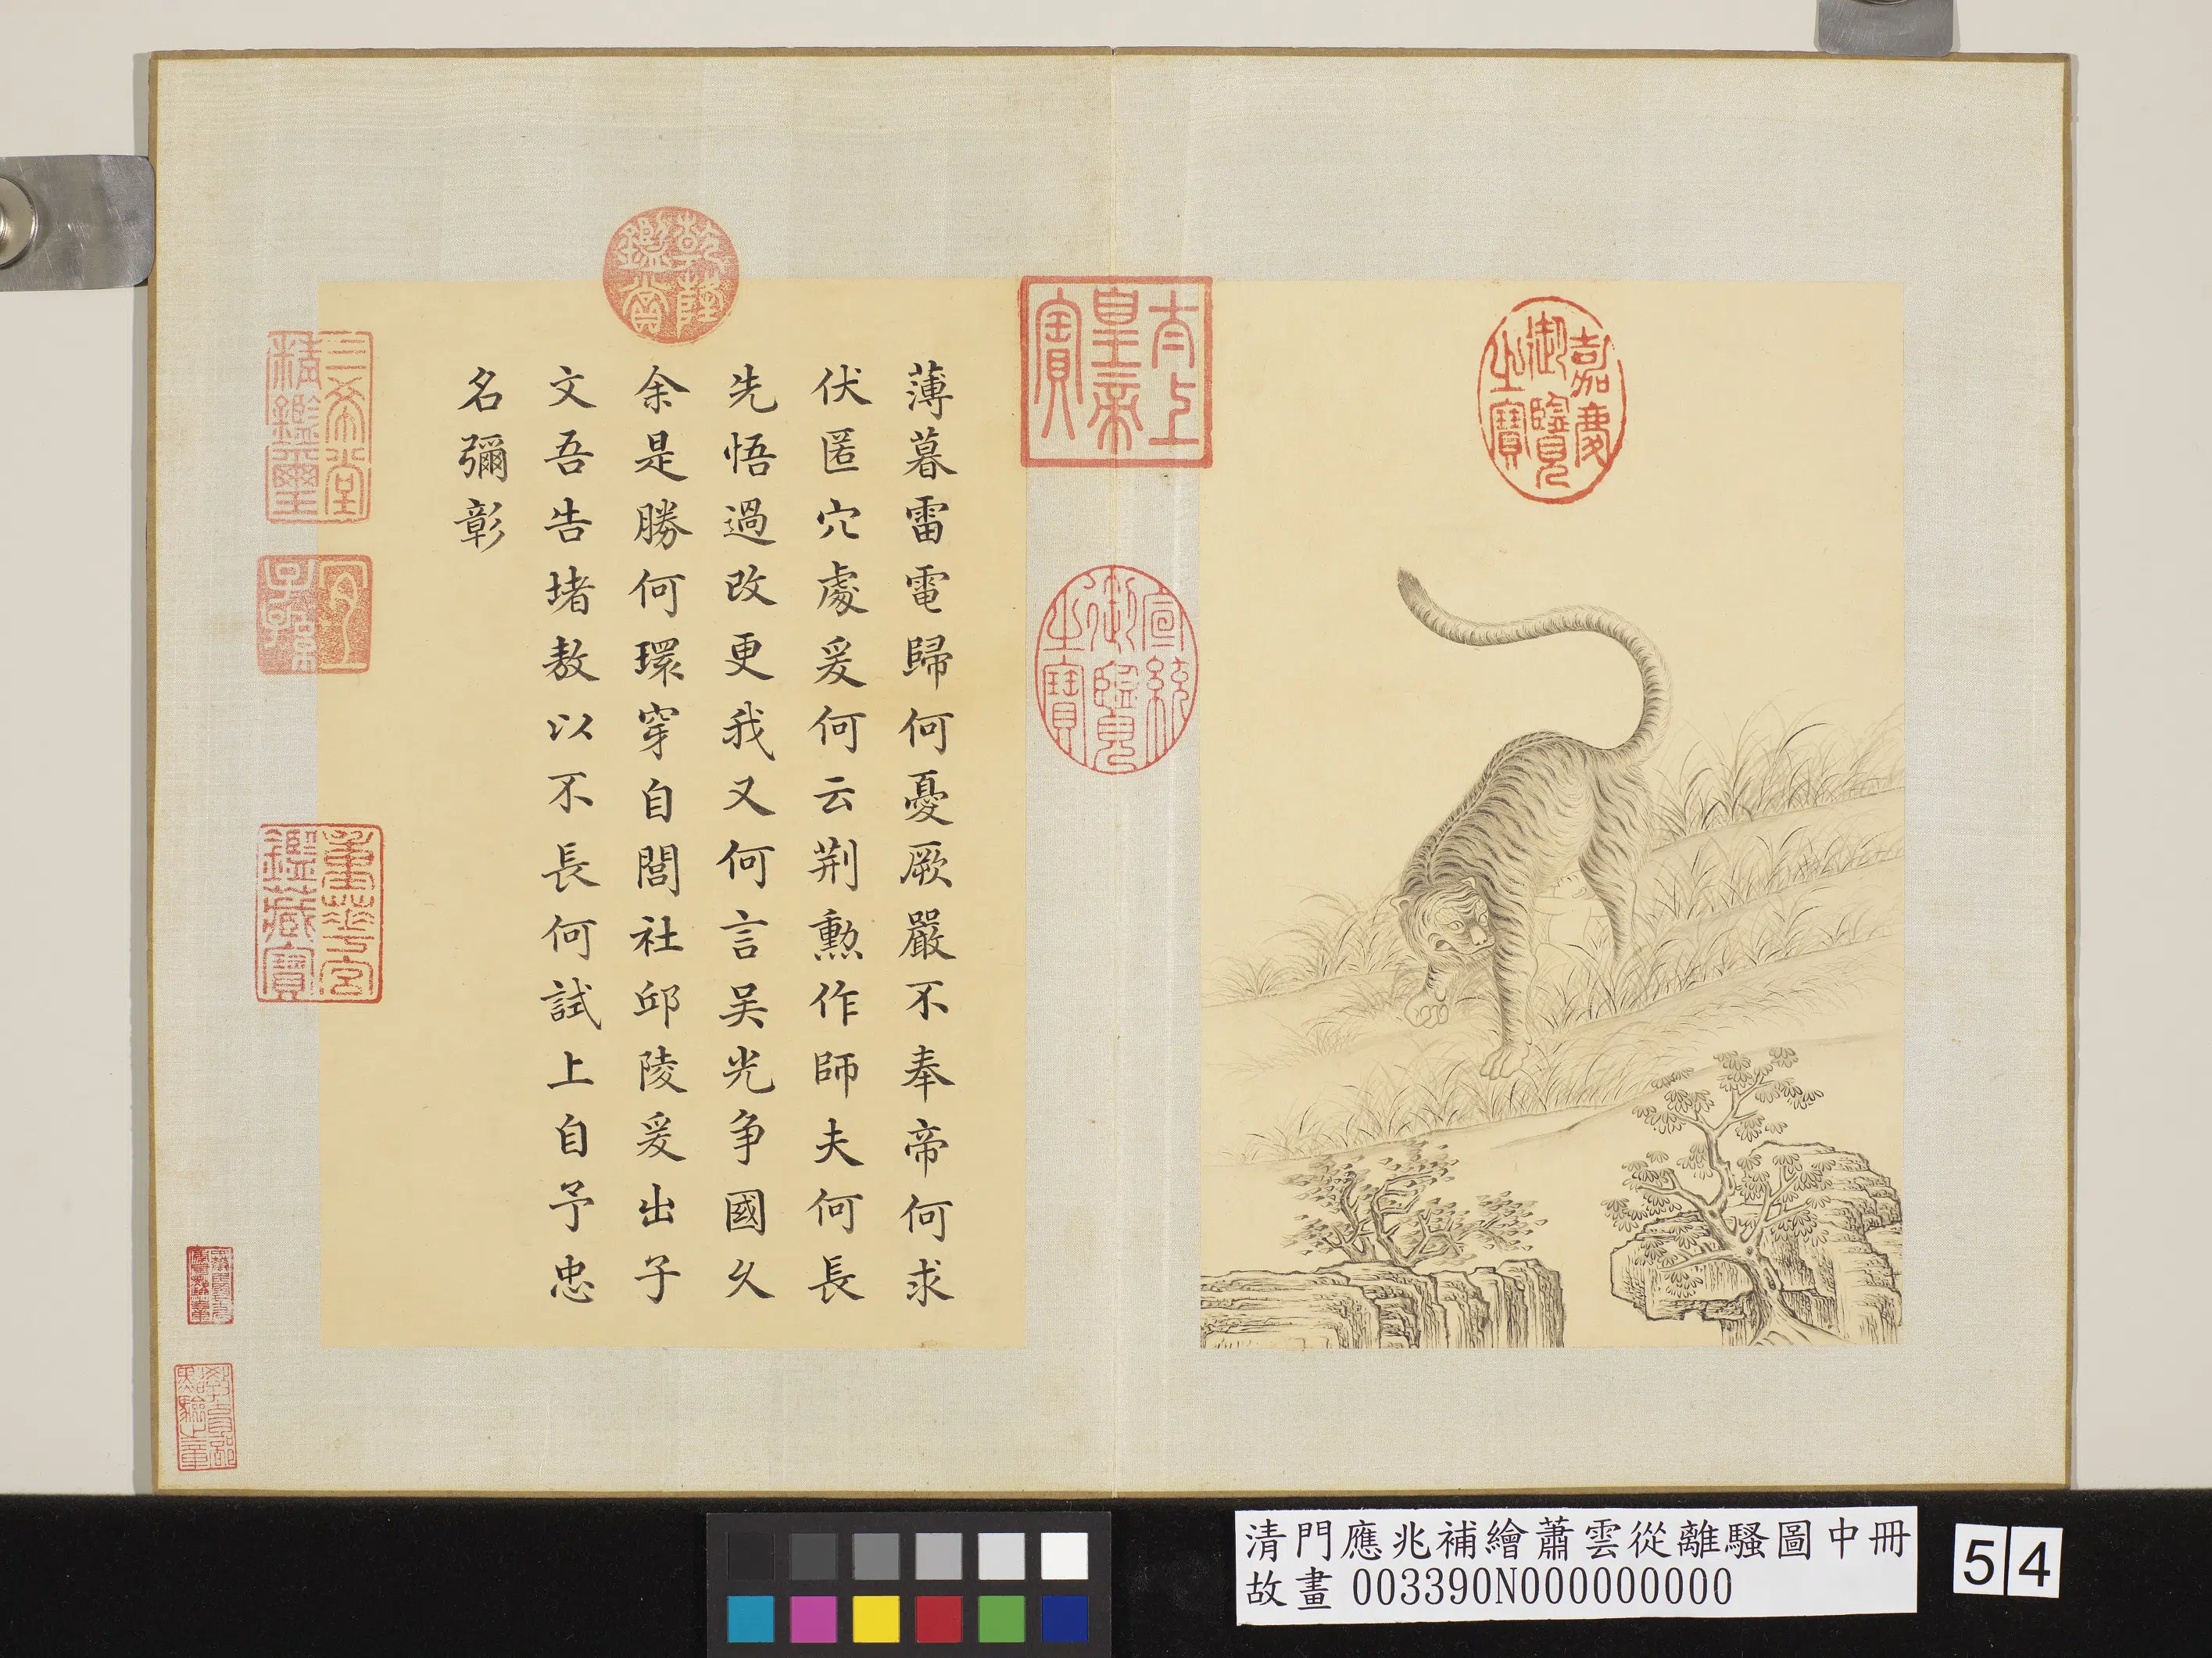 嘉慶御覽之寶
太上皇帝之寶
宣統御覽之寶
乾隆鑑賞
薄暮雷電歸何憂厥嚴不奉帝何求
伏匿穴處爰何云荆勲作師夫何長
先悟過改更我又何言吴光争國久
余是勝何環穿自閭社邱陵爰出子
文吾告堵敖以不長何試上自予忠
名彌彰
三希堂精鑑璽
宜子孫
重華宮鑑藏寶
教育部點驗之章
清門應兆補繪蕭雲從離騷圖中冊
故畫 003390N000000000
54